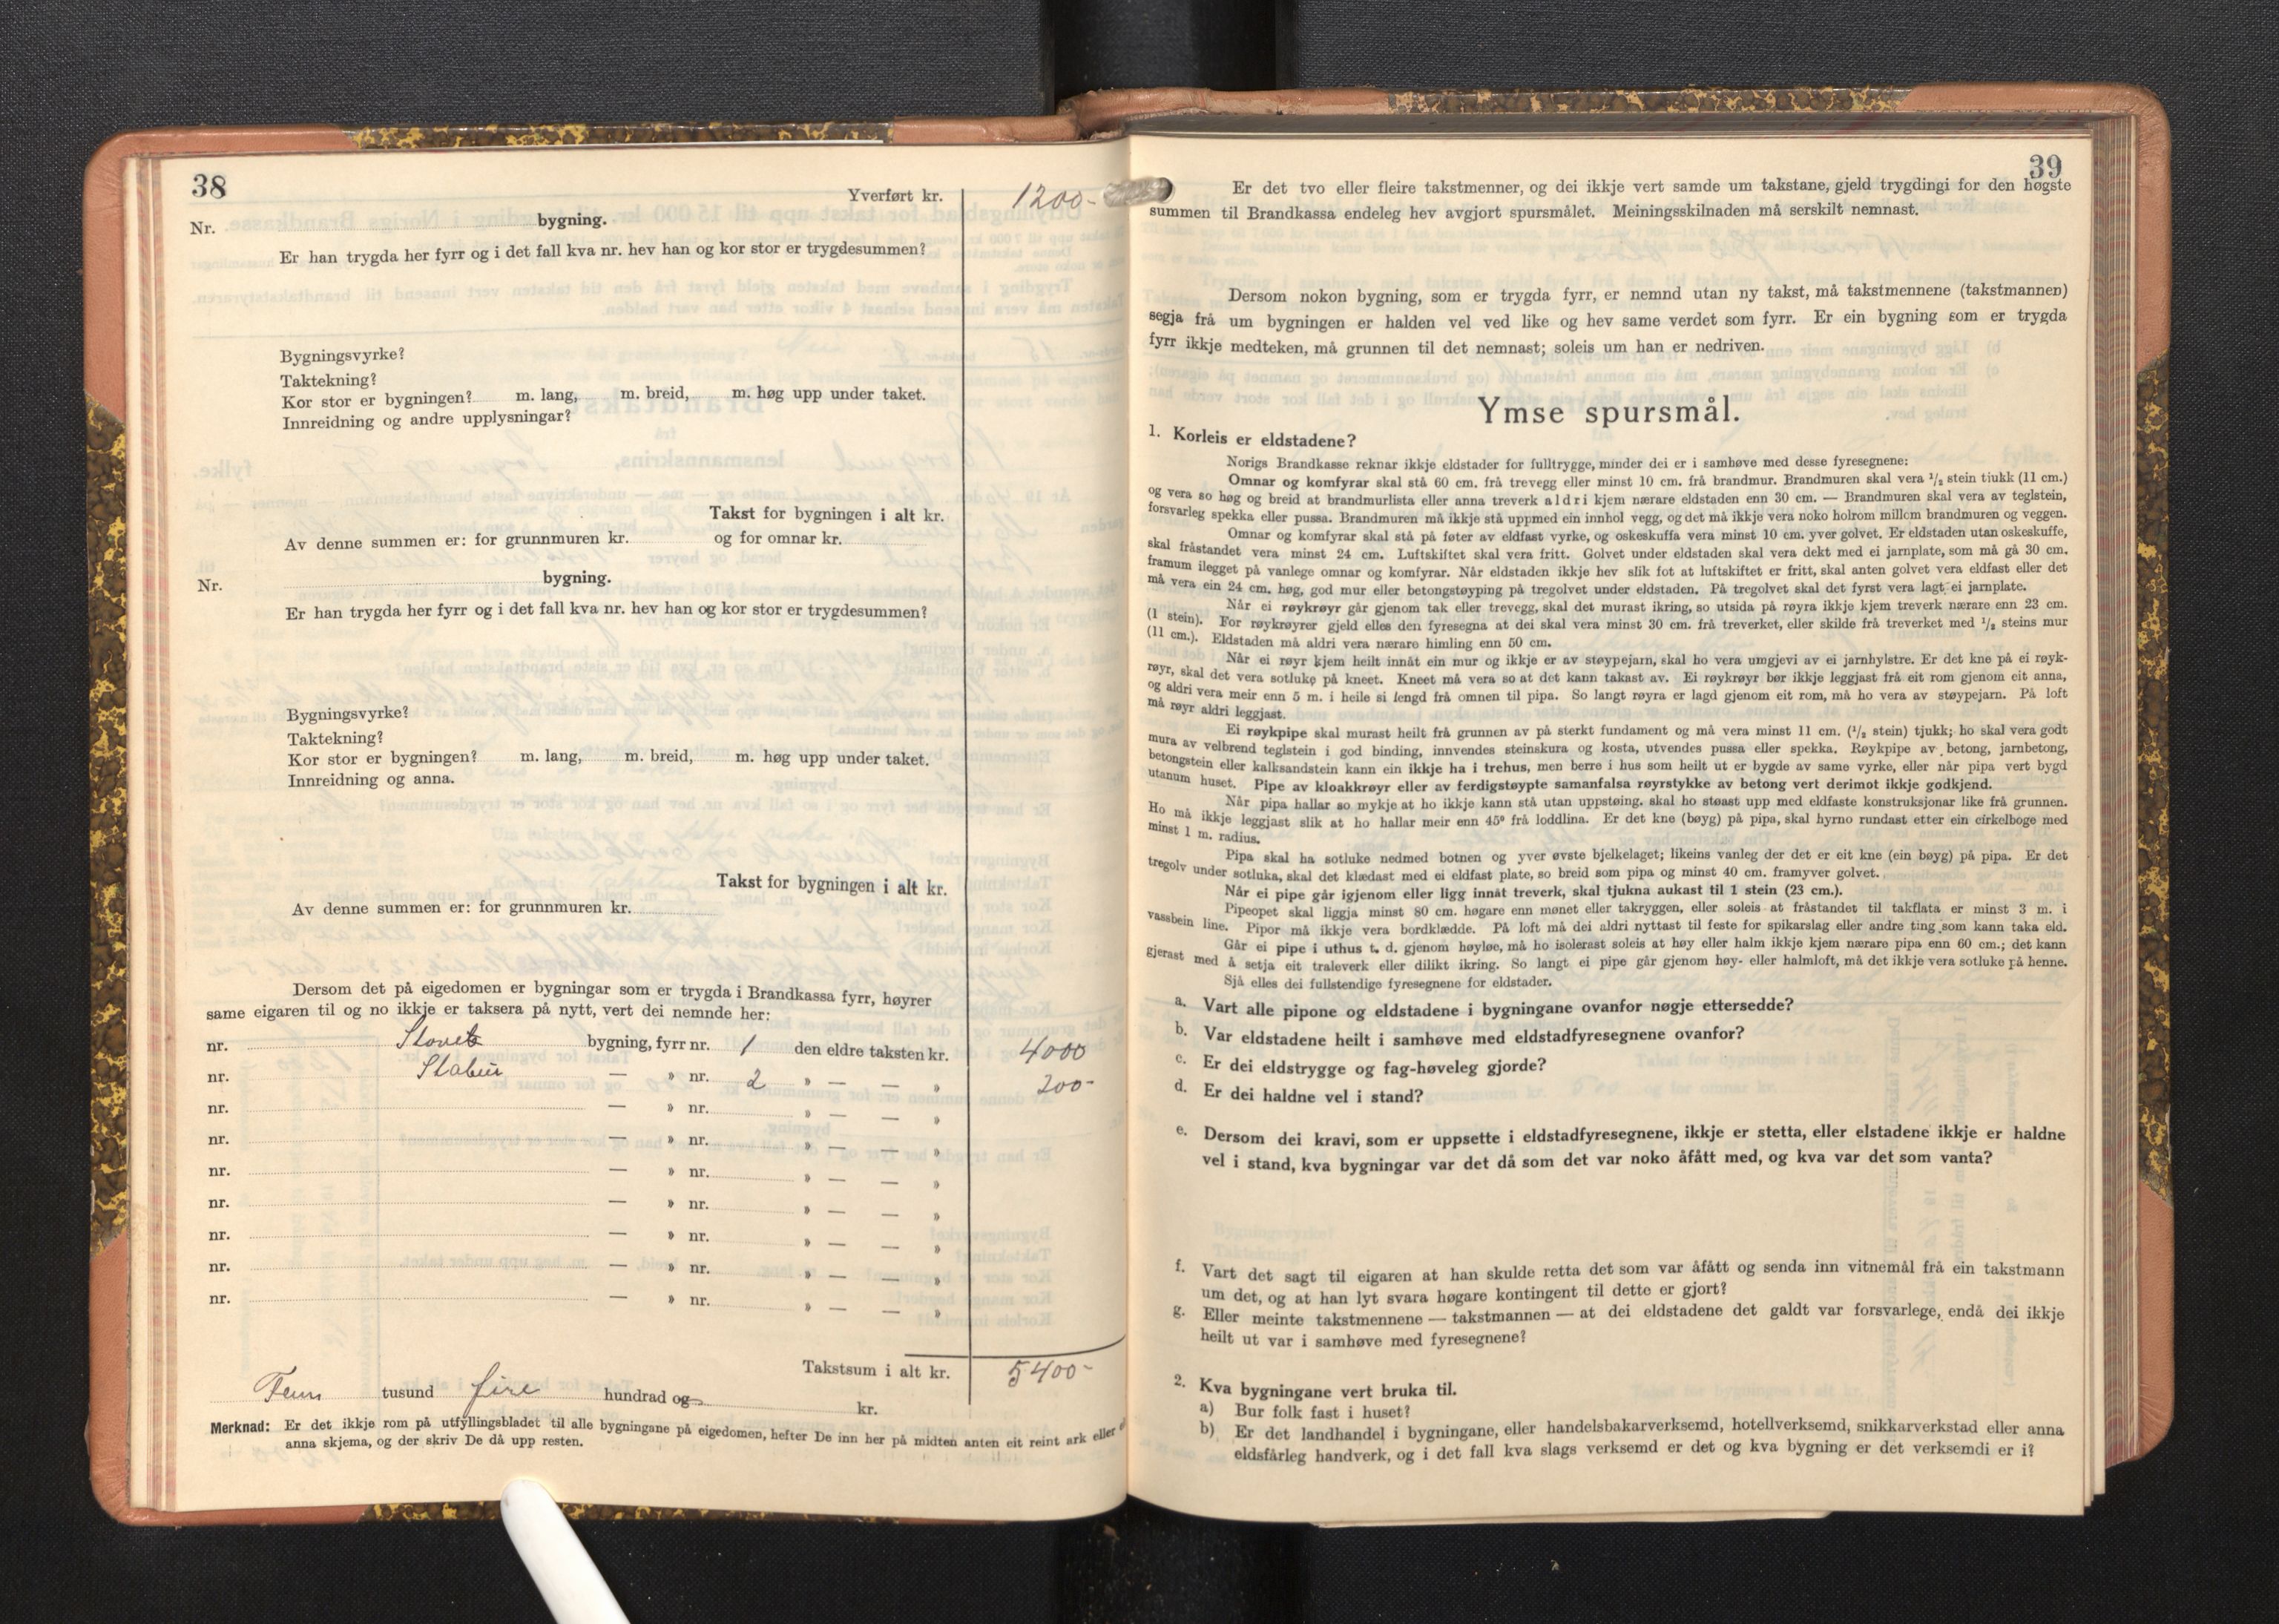 38
Yverført kr. 1200-
Nr. bygning.
Er han trygda her fyrr og i det fall kva nr. hev han og kor stor er trygdesummen?
Bygningsvyrke?
Taktekning?
Kor stor er bygningen? m. lang, m. breid, m. høg upp under taket.
Innreidning og andre upplysningar?
Takst for bygningen i alt kr.
Av denne summen er: for grunnmuren kr. og for omnar kr.
Nr. bygning.
Er han trygda her fyrr og i det fall kva nr. hev han og kor stor er trygdesummen?
Bygningsvyrke?
Taktekning?
Kor stor er bygningen? m. lang, m. breid, m. høg upp under taket.
Innreidning og anna.
Takst for bygningen i alt kr.
Av denne summen er: for grunnmuren kr.
Dersom det på eigedomen er bygningar som er trygda i Brandkassa fyrr, høyrer
same eigaren til og no ikkje er taksera på nytt, vert dei nemnde her:
nr. bygning, fyrr nr. 1 den eldre taksten kr. 4000
nr. Stabur — » nr. 2 » — — » 200-
nr. — » nr. » — — »
nr. — » nr. » — — »
nr. — » nr. » — — »
nr. — » nr. » — — »
nr. — » nr. » — — »
nr. — » nr. » — — »
nr. — » nr. » — — »
Takstsum i alt kr. 5400-
Fem tusund fire hundrad og kr.
Merknad: Er det ikkje rom på utfyllingsbladet til alle bygningane på eigedomen, hefter De inn her på midten anten eit reint ark eller
anna skjema, og der skriv De då upp resten.
39
Er det tvo eller fleire takstmenner, og dei ikkje vert samde um takstane, gjeld trygdingi for den høgste
summen til Brandkassa endeleg hev avgjort spursmålet. Meiningsskilnaden må serskilt nemnast.
Dersom nokon bygning, som er trygda fyrr, er nemnd utan ny takst, må takstmennene (takstmannen)
segja frå um bygningen er halden vel ved like og hev same verdet som fyrr. Er ein bygning som er trygda
fyrr ikkje medteken, må grunnen til det nemnast; soleis um han er nedriven.
Ymse spursmål.
1. Korleis er eldstadene?
Norigs Brandkasse reknar ikkje eldstader for fulltrygge, minder dei er i samhøve med desse fyresegnene:
Omnar og komfyrar skal stå 60 cm. frå trevegg eller minst 10 cm. frå brandmur. Brandmuren skal vera 1/2 stein tiukk (11 cm.)
og vera so høg og breid at brandmurlista eller anna treverk aldri kjem nærare eldstaden enn 30 cm. — Brandmuren skal vera av teglstein,
forsvarleg spekka eller pussa. Brandmuren må ikkje stå uppmed ein innhol vegg, og det må ikkje vera noko holrom millom brandmuren og veggen.
Omnar og komfyrar skal stå på føter av eldfast vyrke, og oskeskuffa vera minst 10 cm. yver golvet. Er eldstaden utan oskeskuffe,
skal fråstandet vera minst 24 cm. Luftskiftet skal vera fritt. Golvet under eldstaden skal vera dekt med ei jarnplate, som må gå 30 cm.
framum ilegget på vanlege omnar og komfyrar. Når eldstaden ikkje hev slik fot at luftskiftet er fritt, skal anten golvet vera eldfast eller det
må vera ein 24 cm. høg, god mur eller betongstøyping på tregolvet under eldstaden. På tregolvet skal det fyrst vera lagt ei jarnplate.
Når ei røykrøyr går gjenom tak eller trevegg, skal det murast ikring, so utsida på røyra ikkje kjem treverk nærare enn 23 cm.
(1 stein). For røykrøyrer gjeld elles den fyresegna at dei skal vera minst 30 cm. frå treverket, eller skilde frå treverket med 1/2 steins mur
(11 cm.). Eldstaden må aldri vera nærare himling enn 50 cm.
Når ei røyr kjem heilt innåt ein mur og ikkje er av støypejarn, skal ho vera umgjevi av ei jarnhylstre. Er det kne på ei røyk-
røyr, skal det vera sotluke på kneet. Kneet må vera so at det kann takast av. Ei røykrøyr bør ikkje leggjast frå eit rom gjenom eit anna,
og aldri vera meir enn 5 m. i heile si lengd frå omnen til pipa. So langt røyra er lagd gjenom eit rom, må ho vera av støypejarn. På loft
må røyr aldri leggjast.
Ei røykpipe skal murast heilt frå grunnen av på sterkt fundament og må vera minst 11 cm. (1/2 stein) tjukk; ho skal vera godt
mura av velbrend teglstein i god binding, innvendes steinskura og kosta, utvendes pussa eller spekka. Røykpipe av betong, jarnbetong,
betongstein eller kalksandstein kann ein ikkje ha i trehus, men berre i hus som heilt ut er bygde av same vyrke, eller når pipa vert bygd
utanum huset. Pipe av kloakkrøyr eller av ferdigstøypte samanfalsa røyrstykke av betong vert derimot ikkje godkjend.
Når pipa hallar so mykje at ho ikkje kann stå utan uppstøing. skal ho støast upp med eldfaste konstruksjonar like frå grunnen.
Ho må ikkje leggjast slik at ho hallar meir enn 45° frå loddlina. Er det kne (bøyg) på pipa, skal hyrno rundast etter ein cirkelboge med
minst 1 m. radius.
Pipa skal ha sotluke nedmed botnen og yver øvste bjelkelaget; likeins vanleg der det er eit kne (ein bøyg) på pipa. Er det
tregolv under sotluka, skal det klædast med ei eldfast plate, so breid som pipa og minst 40 cm. framyver golvet.
Når ei pipe går igjenom eller ligg innåt treverk, skal tjukna aukast til 1 stein (23 cm.).
Pipeopet skal liggja minst 80 cm. høgare enn mønet eller takryggen, eller soleis at fråstandet til takflata er minst 3 m. i
vassbein line. Pipor må ikkje vera bordklædde. På loft må dei aldri nyttast til feste for spikarslag eller andre ting som kann taka eld.
Går ei pipe i uthus t. d. gjenom høyløe, må ho isolerast soleis at høy eller halm ikkje kjem nærare pipa enn 60 cm.; det kann
gjerast med å setja eit traleverk eller dilikt ikring. So langt ei pipe går gjenom høy- eller halmloft, må det ikkje vera sotluke på henne.
Sjå elles dei fullstendige fyresegnene for eldstader.
a. Vart alle pipone og eldstadene i bygningane ovanfor nøgje ettersedde?
b. Var eldstadene heilt i samhøve med eldstadfyresegnene ovanfor?
c. Er dei eldstrygge og fag-høveleg gjorde?
d. Er dei haldne vel i stand?
e. Dersom dei kravi, som er uppsette i eldstadfyresegnene, ikkje er stetta, eller elstadene ikkje er haldne
vel i stand, kva bygningar var det då som det var noko åfått med, og kva var det som vanta?
f. Vart det sagt til eigaren at han skulde retta det som var åfått og senda inn vitnemål frå ein takstmann
um det, og at han lyt svara høgare kontingent til dette er gjort?
g. Eller meinte takstmennene — takstmannen — at dei eldstadene det galdt var forsvarlege, endå dei ikkje
heilt ut var i samhøve med fyresegnene?
2. Kva bygningane vert bruka til.
a) Bur folk fast i huset?
b) Er det landhandel i bygningane, eller handelsbakarverksemd, hotellverksemd, snikkarverkstad eller anna
eldsfårleg handverk, og i det fall kva slags verksemd er det og kva bygning er det verksemdi er i?